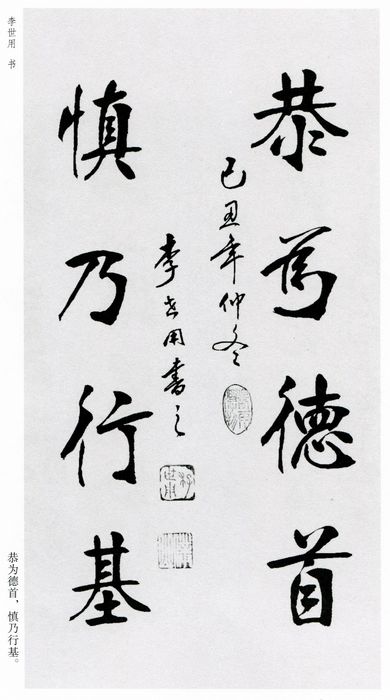 恭为德首
己丑年仲冬
李世用书之
慎乃行基
李世用 书
恭为德首，慎乃行基。